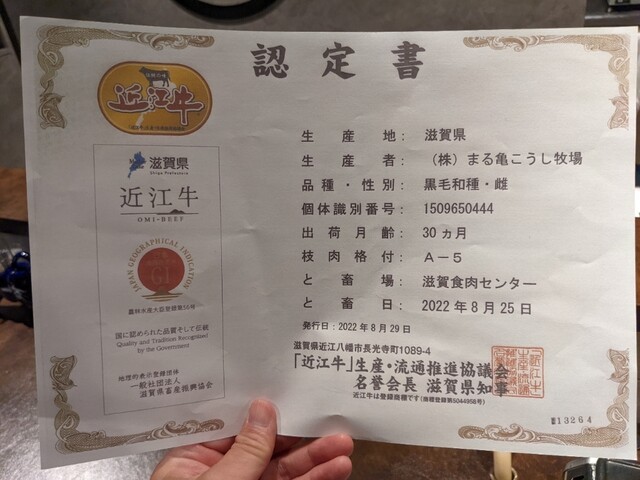 認定書
近江牛
滋賀県
Shiga Prefecture
近江牛
OMI-BEEF
JAPAN GEOGRAPHICAL INDICATION
GI
農林水産大臣登録第56号
国に認められた品質そして伝統
Quality and Tradition Recognized
by the Government
地理的表示登録団体
一般社団法人
滋賀県畜産振興協会
生産地： 滋賀県
生産者： （株）まる亀こうし牧場
品種・性別： 黒毛和種・雌
個体識別番号： 1509650444
出荷月齢： 30ヵ月
枝肉格付： A－5
と畜場： 滋賀食肉センター
と畜日： 2022年8月25日
発行日：2022年8月29日
滋賀県近江八幡市長光寺町1089-4
「近江牛」生産・流通推進協議会
名誉会長 滋賀県知事
近江牛は登録商標です(商標登録第5044958号)
13264